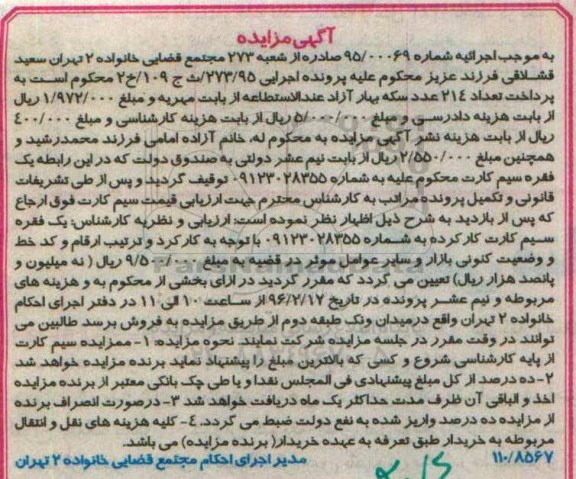 آگهی مزایده
به موجب اجرائیه شماره ۹۵/۰۰۰۶۹ صادره از شعبه ۲۷۳ مجتمع قضایی خانواده ۲ تهران سعید
قشلاقی فرزند عزیز محکوم علیه پرونده اجرایی ۲۷۳/۹۵/ث ج ۱۰۹/خ۲ محکوم است به
پرداخت تعداد ۲۱۴ عدد سکه بهار آزاد عندالاستطاعه از بابت مهریه و مبلغ ۱/۹۷۲/۰۰۰ ریال
از بابت هزینه دادرسی و مبلغ ۵/۰۰۰/۰۰۰ ریال از بابت هزینه کارشناسی و مبلغ ۴۰۰/۰۰۰
ریال از بابت هزینه نشر آگهی مزایده به محکوم له، خانم آزاده امامی فرزند محمدرشید و
همچنین مبلغ ۲/۵۵۰/۰۰۰ ریال از بابت نیم عشر دولتی به صندوق دولت که در این رابطه یک
فقره سیم کارت محکوم علیه به شماره ۰۹۱۲۳۰۲۸۳۵۵ توقیف گردید و پس از طی تشریفات
قانونی و تکمیل پرونده مراتب به کارشناس محترم جهت ارزیابی قیمت سیم کارت فوق ارجاع
که پس از بازدید به شرح ذیل اظهار نظر نموده است: ارزیابی و نظریه کارشناس: یک فقره
سیم کارت کارکرده به شماره ۰۹۱۲۳۰۲۸۳۵۵ با توجه به کارکرد و ترتیب ارقام و کد خط
و وضعیت کنونی بازار و سایر عوامل موثر در قضیه به مبلغ ۹/۵۰۰/۰۰۰ ریال ( نه میلیون و
پانصد هزار ریال) تعیین می گردد که مقرر گردید در ازای بخشی از محکوم به و هزینه های
مربوطه و نیم عشر پرونده در تاریخ ۹۶/۲/۱۷ از ساعت ۱۰ الی ۱۱ در دفتر اجرای احکام
خانواده ۲ تهران واقع درمیدان ونک طبقه دوم از طریق مزایده به فروش برسد طالبین می
توانند در وقت مقرر در جلسه مزایده شرکت نمایند. نحوه مزایده: ۱- ممزایده سیم کارت
از پایه کارشناسی شروع و کسی که بالاترین مبلغ را پیشنهاد نماید برنده مزایده خواهد شد
۲- ده درصد از کل مبلغ پیشنهادی فی المجلس نقدا و یا طی چک بانکی معتبر از برنده مزایده
اخذ و الباقی آن ظرف مدت حداکثر یک ماه دریافت خواهد شد ۳- درصورت انصراف برنده
از مزایده ده درصد واریز شده به نفع دولت ضبط می گردد. ۴- کلیه هزینه های نقل و انتقال
مربوطه به خریدار طبق تعرفه به عهده خریدار( برنده مزایده) می باشد.
۱۱۰/۸۵۶۷ مدیر اجرای احکام مجتمع قضایی خانواده ۲ تهران